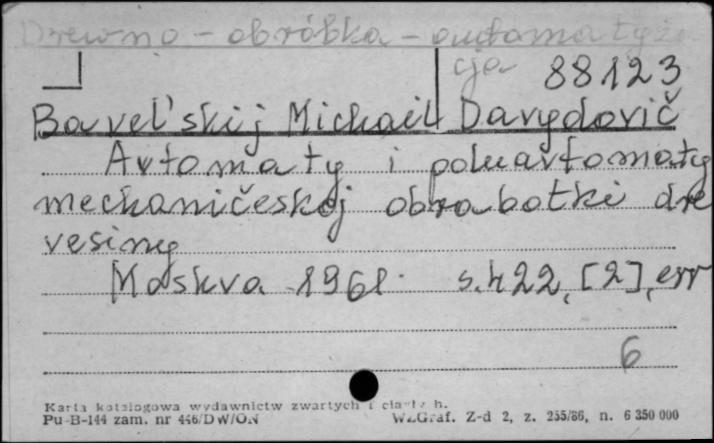 Drewno - obróbka - automatyza
cja 88123
Bavel'skij Michail Davydovič
Avtomaty i poluavtomaty
mechaničeskoj obrabotki dre
vesiny
Moskva 1961. s. 422, [2], err
6
Karta katalogowa wydawnictw zwartych i
Pu-B-144 zam. nr 446/DW/ON WZGraf. Z-d 2, z. 255/86, n. 6 350 000